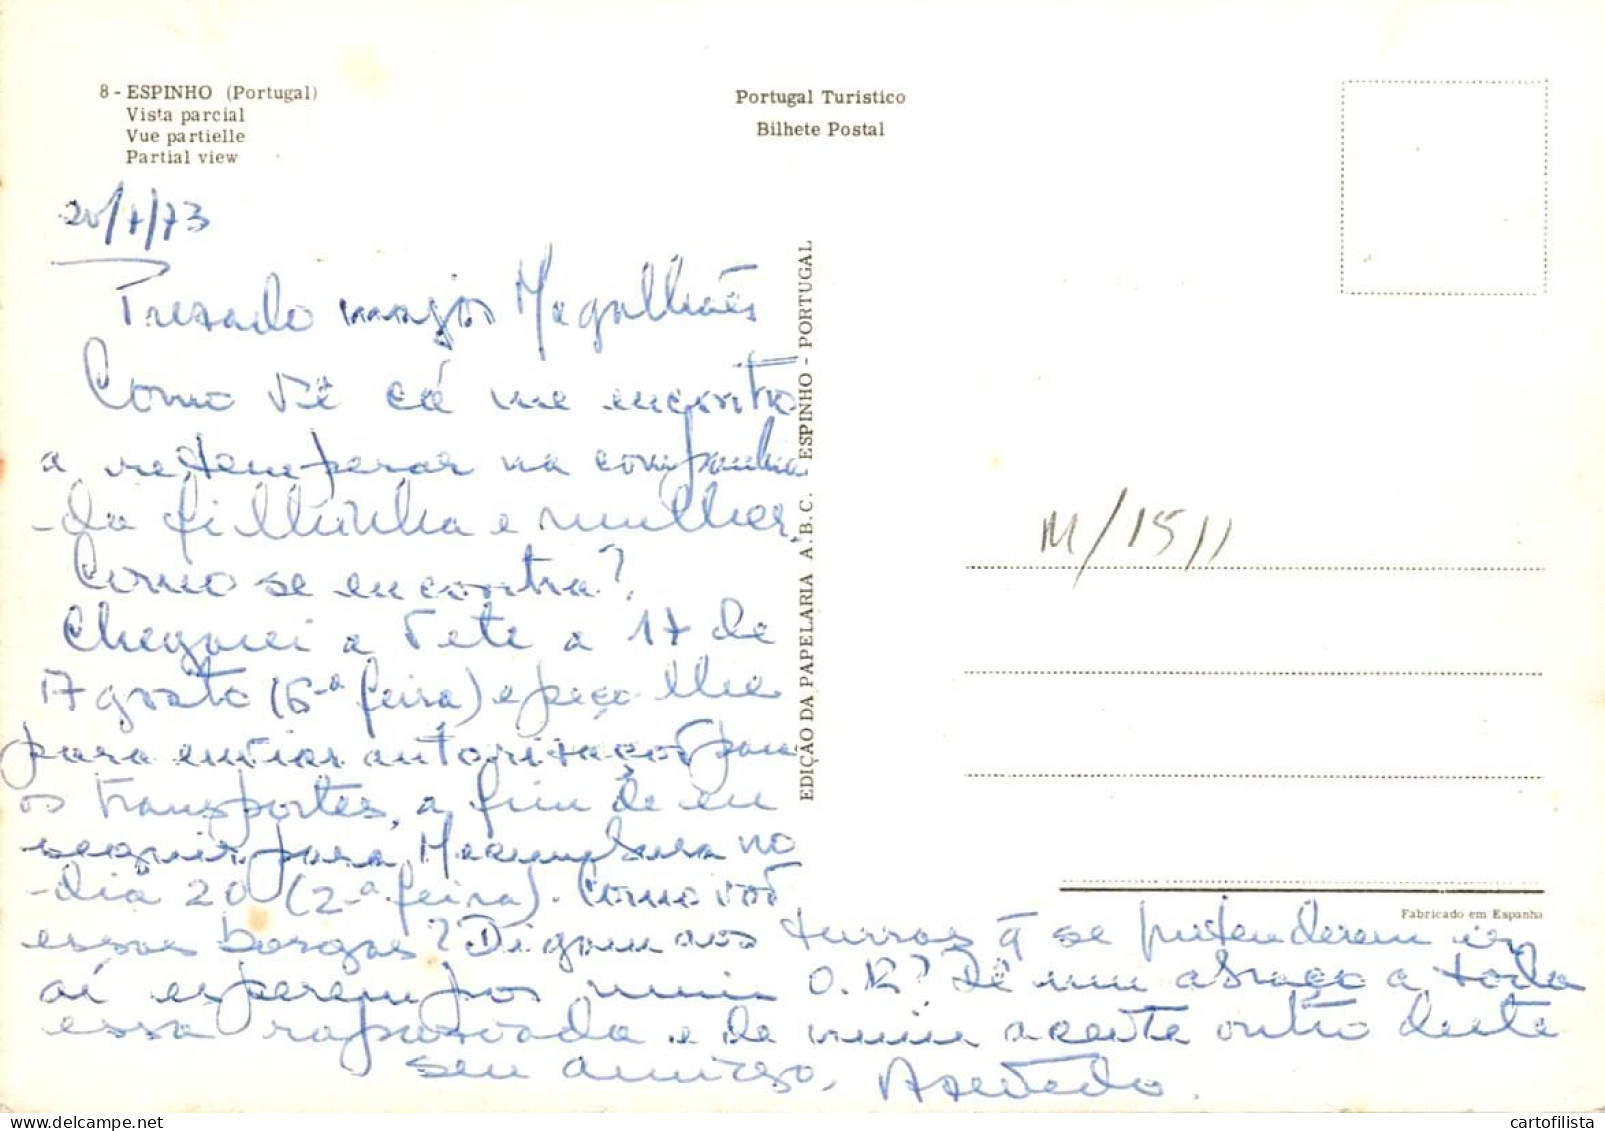 8 - ESPINHO (Portugal)
Vista parcial
Vue partielle
Partial view
Portugal Turistico
Bilhete Postal
20/7/73
Prezado major Magalhães
Como vê cá me encontro
a retemperar na companhia
da filhinha e mulher.
Como se encontra?
Chegarei a Tete a 17 de
Agosto (6ª feira) e peço-lhe
para enviar autorizações para
os transportes, a fim de eu
seguir para Macumbura no
dia 20 (2ª feira). Como vão
essas borgas? Digam aos turras q se pretenderem ir
aí esperem por mim O.K? Dê um abraço a toda
essa rapaziada e de mim aceite outro deste
seu amigo, Azevedo.
EDIÇÃO DA PAPELARIA A.B.C. ESPINHO - PORTUGAL
M/1511
Fabricado em Espanha
cartofilista